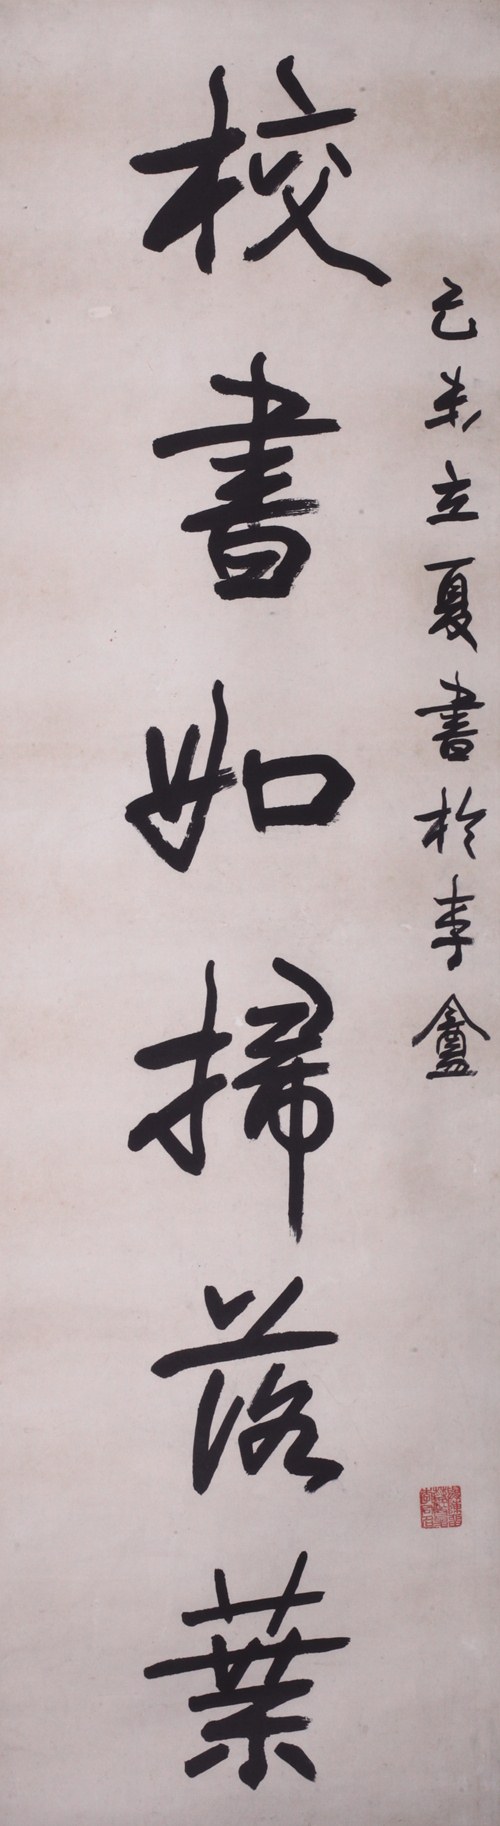 己未立夏書於盦
校書如掃落葉